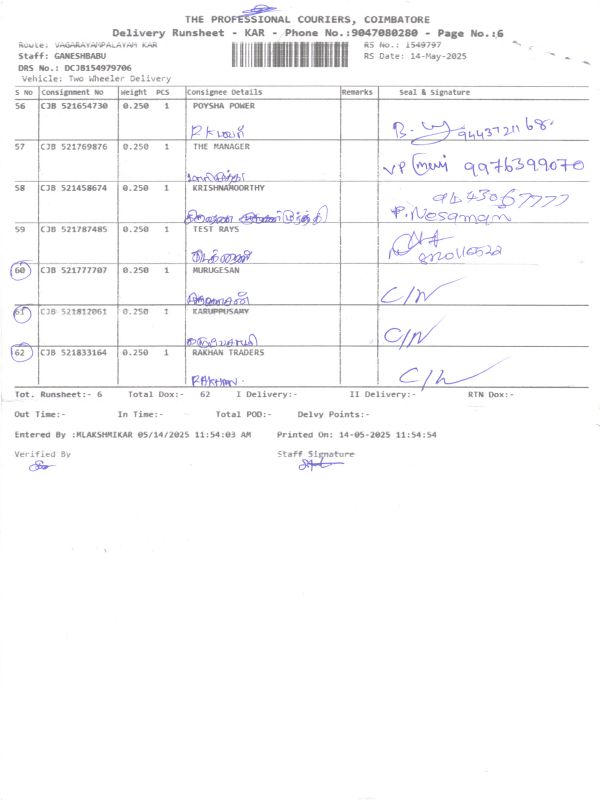 THE PROFESSIONAL COURIERS, COIMBATORE
Delivery Runsheet - KAR - Phone No.:9047080280 - Page No.:6
Route: VAGARAYAMPALAYAM KAR RS No.: 1549797
Staff: GANESHBABU RS Date: 14-May-2025
DRS No.: DCJB154979706
Vehicle: Two Wheeler Delivery
S No Consignment No Weight PCS Consignee Details Remarks Seal & Signature
56 CJB 521654730 0.250 1 POYSHA POWER
9443721168
57 CJB 521769876 0.250 1 THE MANAGER
VP 9976399070
58 CJB 521458674 0.250 1 KRISHNAMOORTHY
P. Nesamam
59 CJB 521787485 0.250 1 TEST RAYS
60 CJB 521777707 0.250 1 MURUGESAN
C/N
61 CJB 521812061 0.250 1 KARUPPUSAMY
C/N
62 CJB 521833164 0.250 1 RAKHAN TRADERS
RAKHAN.
Tot. Runsheet:- 6 Total Dox:- 62 I Delivery:- II Delivery:- RTN Dox:-
Out Time:- In Time:- Total POD:- Delvy Points:-
Entered By :MLAKSHMIKAR 05/14/2025 11:54:03 AM Printed On: 14-05-2025 11:54:54
Verified By Staff Signature